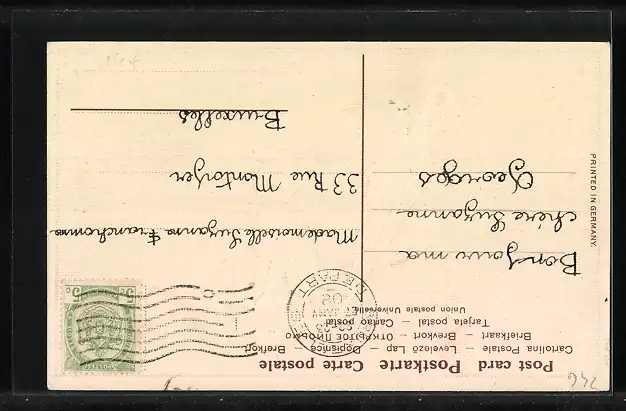 Post card Postkarte Carte postale
Cartolina Postale — Levelező Lap — Dopisnice — Brefkort
Briefkaart — Brevkort — ОТКРЫТОЕ ПИСЬМО
Tarjeta postal — Cartao postal
Union postale Universelle
Bonjour ma
chère Suzanne
Georges
Mademoiselle Suzanne
33 Rue Montoyer
Bruxelles
DEPART
5c 5c
PRINTED IN GERMANY.